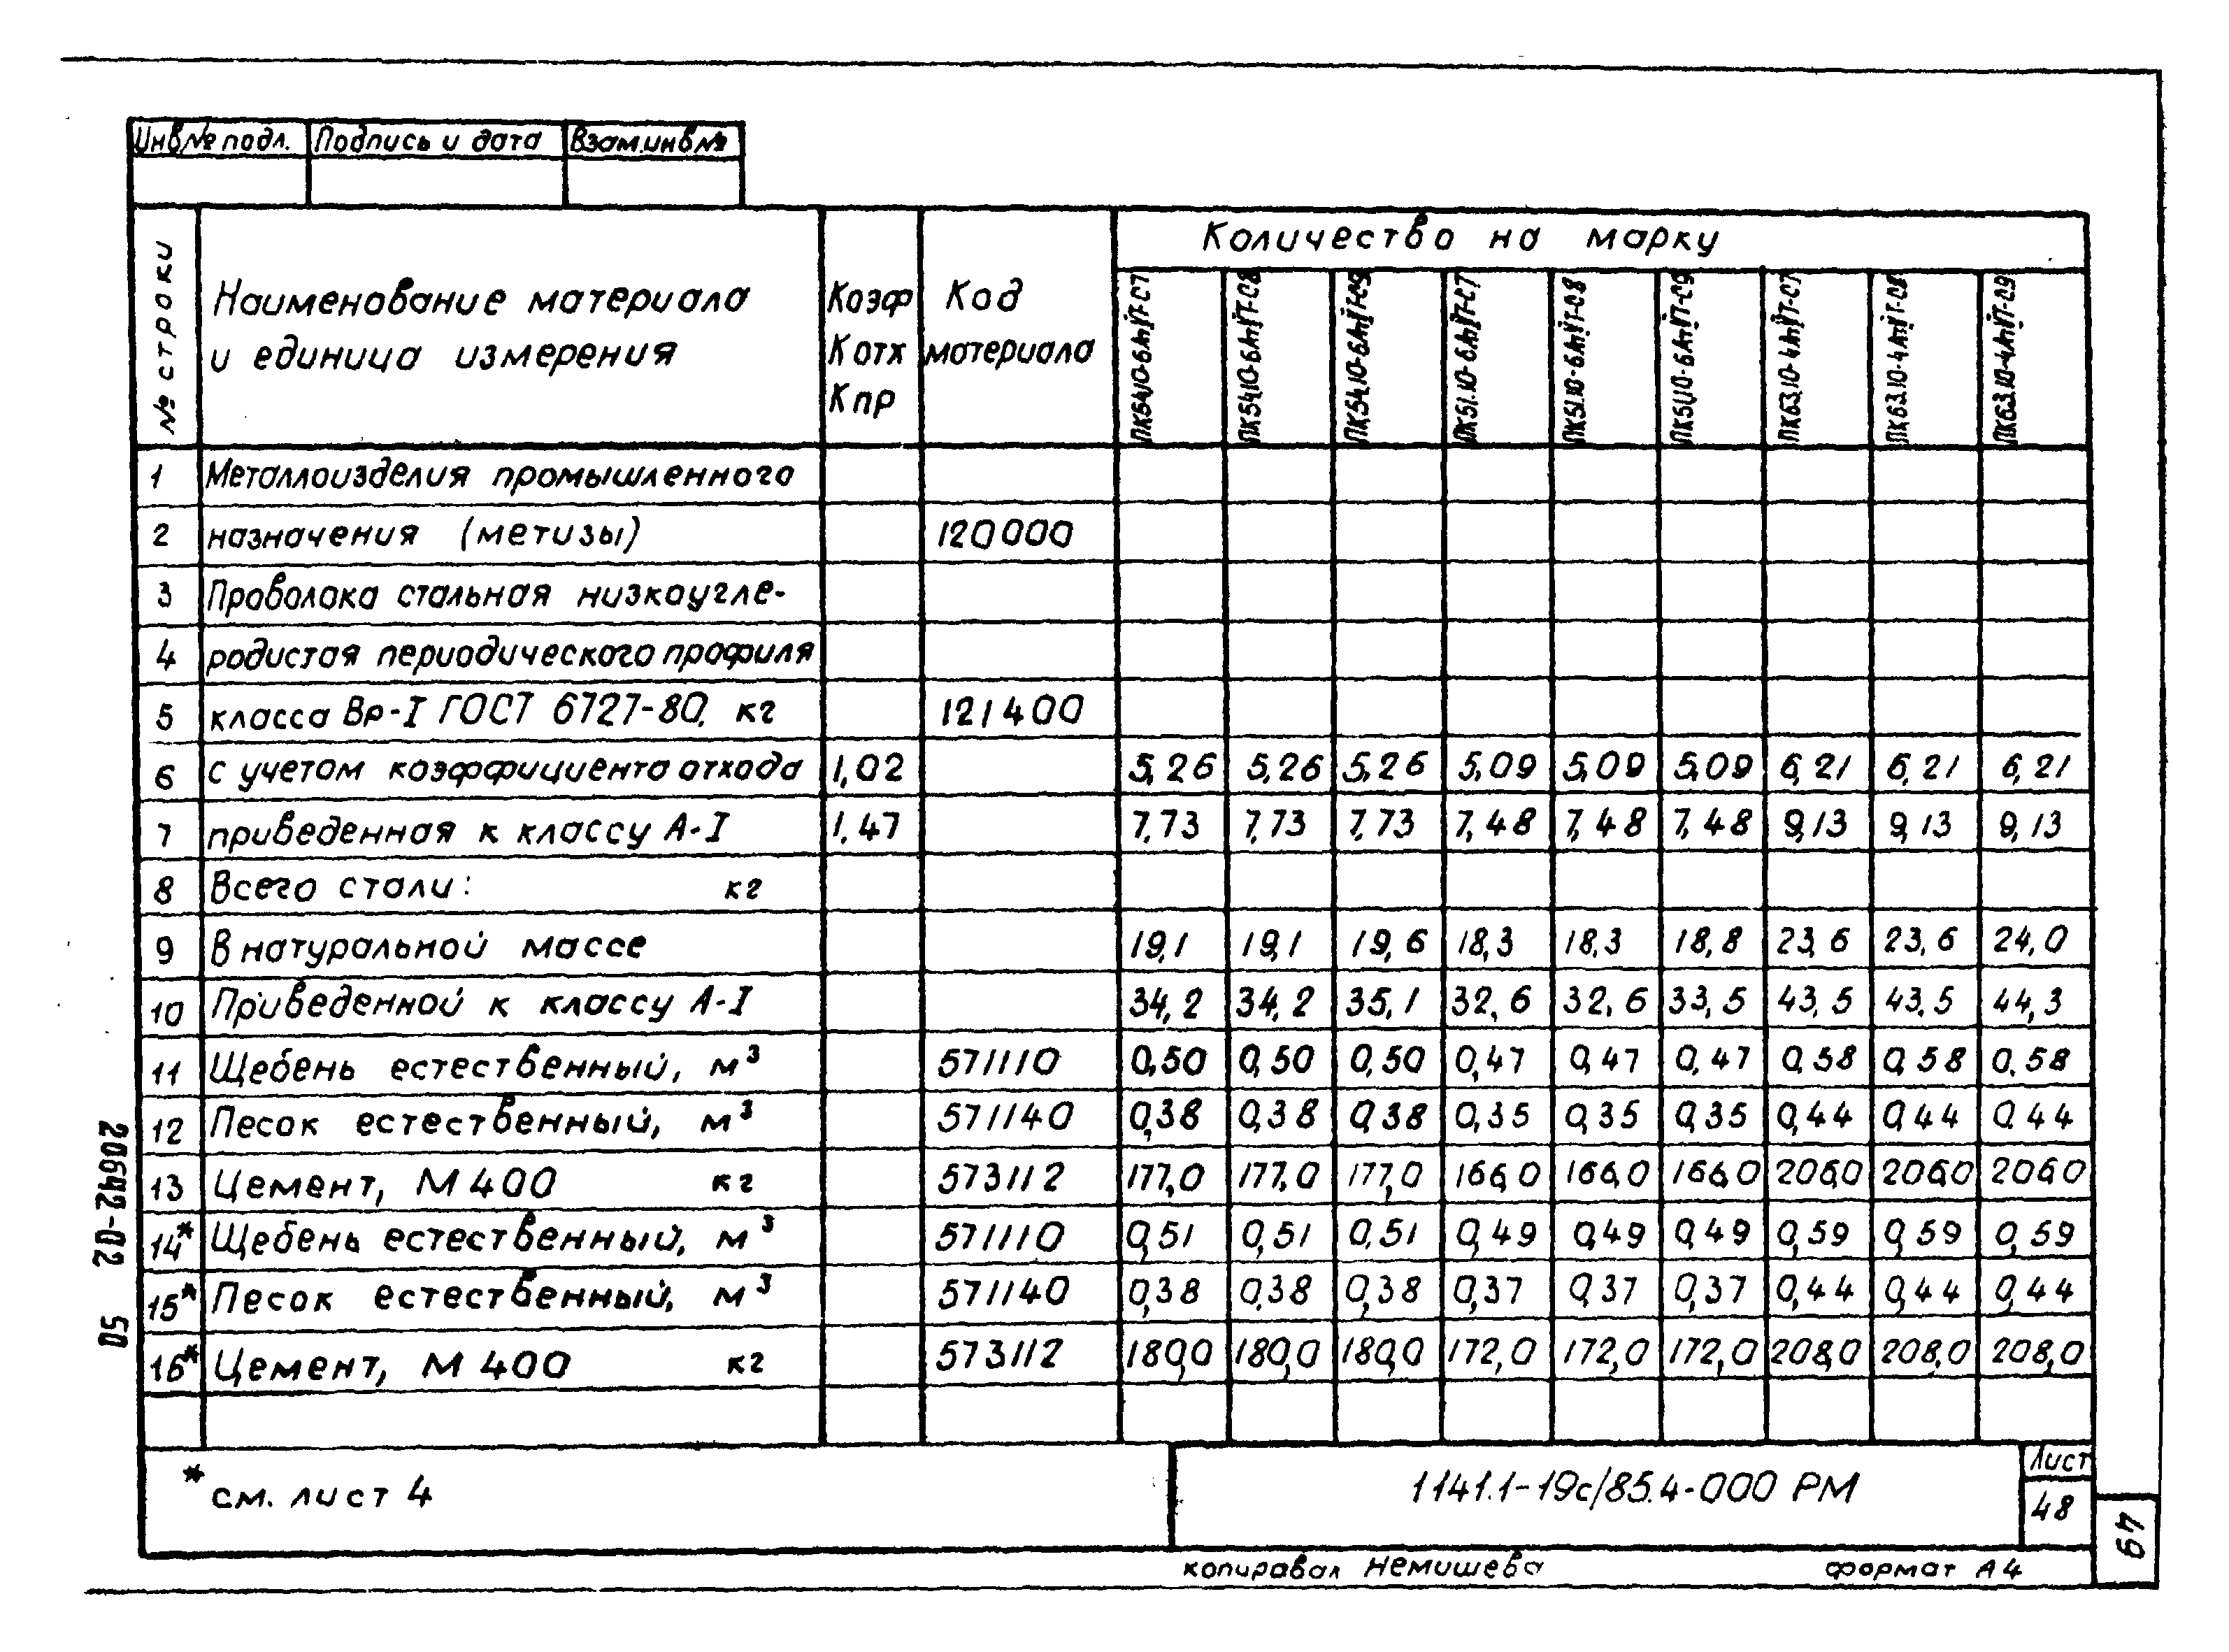 Инв№ подл. Подпись и дата Взам.инв№
№ строки
Наименование материала
и единица измерения
Коэф
Котх
Кпр
Код
материала
Количество на марку
ПК54.10-6АтVТ-С7 ПК54.10-6АтVТ-С8 ПК54.10-6АтVТ-С9 ПК51.10-6АтVТ-С7 ПК51.10-6АтVТ-С8 ПК51.10-6АтVТ-С9 ПК63.10-4АтVТ-С7 ПК63.10-4АтVТ-С8 ПК63.10-4АтVТ-С9
1 Металлоизделия промышленного
2 назначения (метизы) 120000
3 Проволока стальная низкоугле-
4 родистая периодического профиля
5 класса Вр-I ГОСТ 6727-80, кг 121400
6 с учетом коэффициента отхода 1,02 5,26 5,26 5,26 5,09 5,09 5,09 6,21 6,21 6,21
7 приведенная к классу А-I 1,47 7,73 7,73 7,73 7,48 7,48 7,48 9,13 9,13 9,13
8 Всего стали: кг
9 В натуральной массе 19,1 19,1 19,6 18,3 18,3 18,8 23,6 23,6 24,0
10 Приведенной к классу А-I 34,2 34,2 35,1 32,6 32,6 33,5 43,5 43,5 44,3
11 Щебень естественный, м³ 571110 0,50 0,50 0,50 0,47 0,47 0,47 0,58 0,58 0,58
12 Песок естественный, м³ 571140 0,38 0,38 0,38 0,35 0,35 0,35 0,44 0,44 0,44
13 Цемент, М400 кг 573112 177,0 177,0 177,0 166,0 166,0 166,0 206,0 206,0 206,0
14* Щебень естественный, м³ 571110 0,51 0,51 0,51 0,49 0,49 0,49 0,59 0,59 0,59
15* Песок естественный, м³ 571140 0,38 0,38 0,38 0,37 0,37 0,37 0,44 0,44 0,44
16* Цемент, М400 кг 573112 180,0 180,0 180,0 172,0 172,0 172,0 208,0 208,0 208,0
* см. лист 4
1141.1-19с/85.4-000 РМ
Лист
48
49
копировал Немишева формат А4
20642-02 50